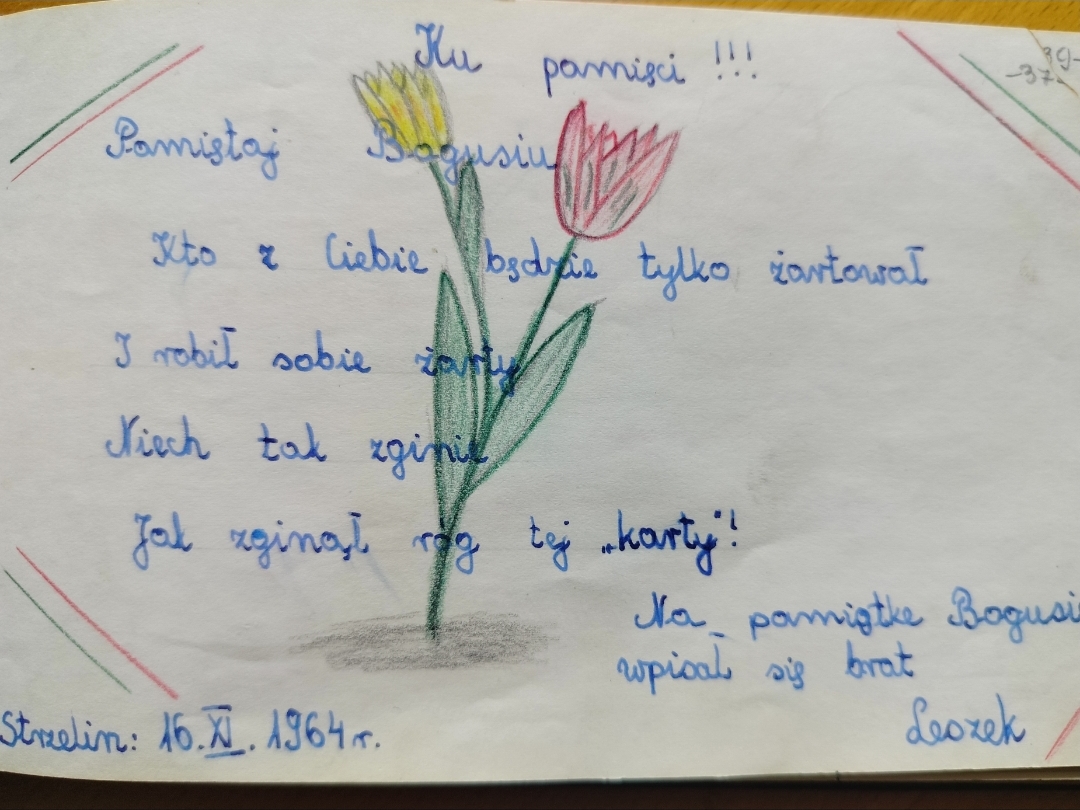 Ku pamięci !!!
39-
-37-
Pamiętaj Bogusiu
Kto z Ciebie będzie tylko żartował
I robił sobie żarty
Niech tak zginie
Jak zginął róg tej „karty"!
Na pamiątkę Bogusi
wpisał się brat
Leszek
Strzelin: 16.XI.1964r.